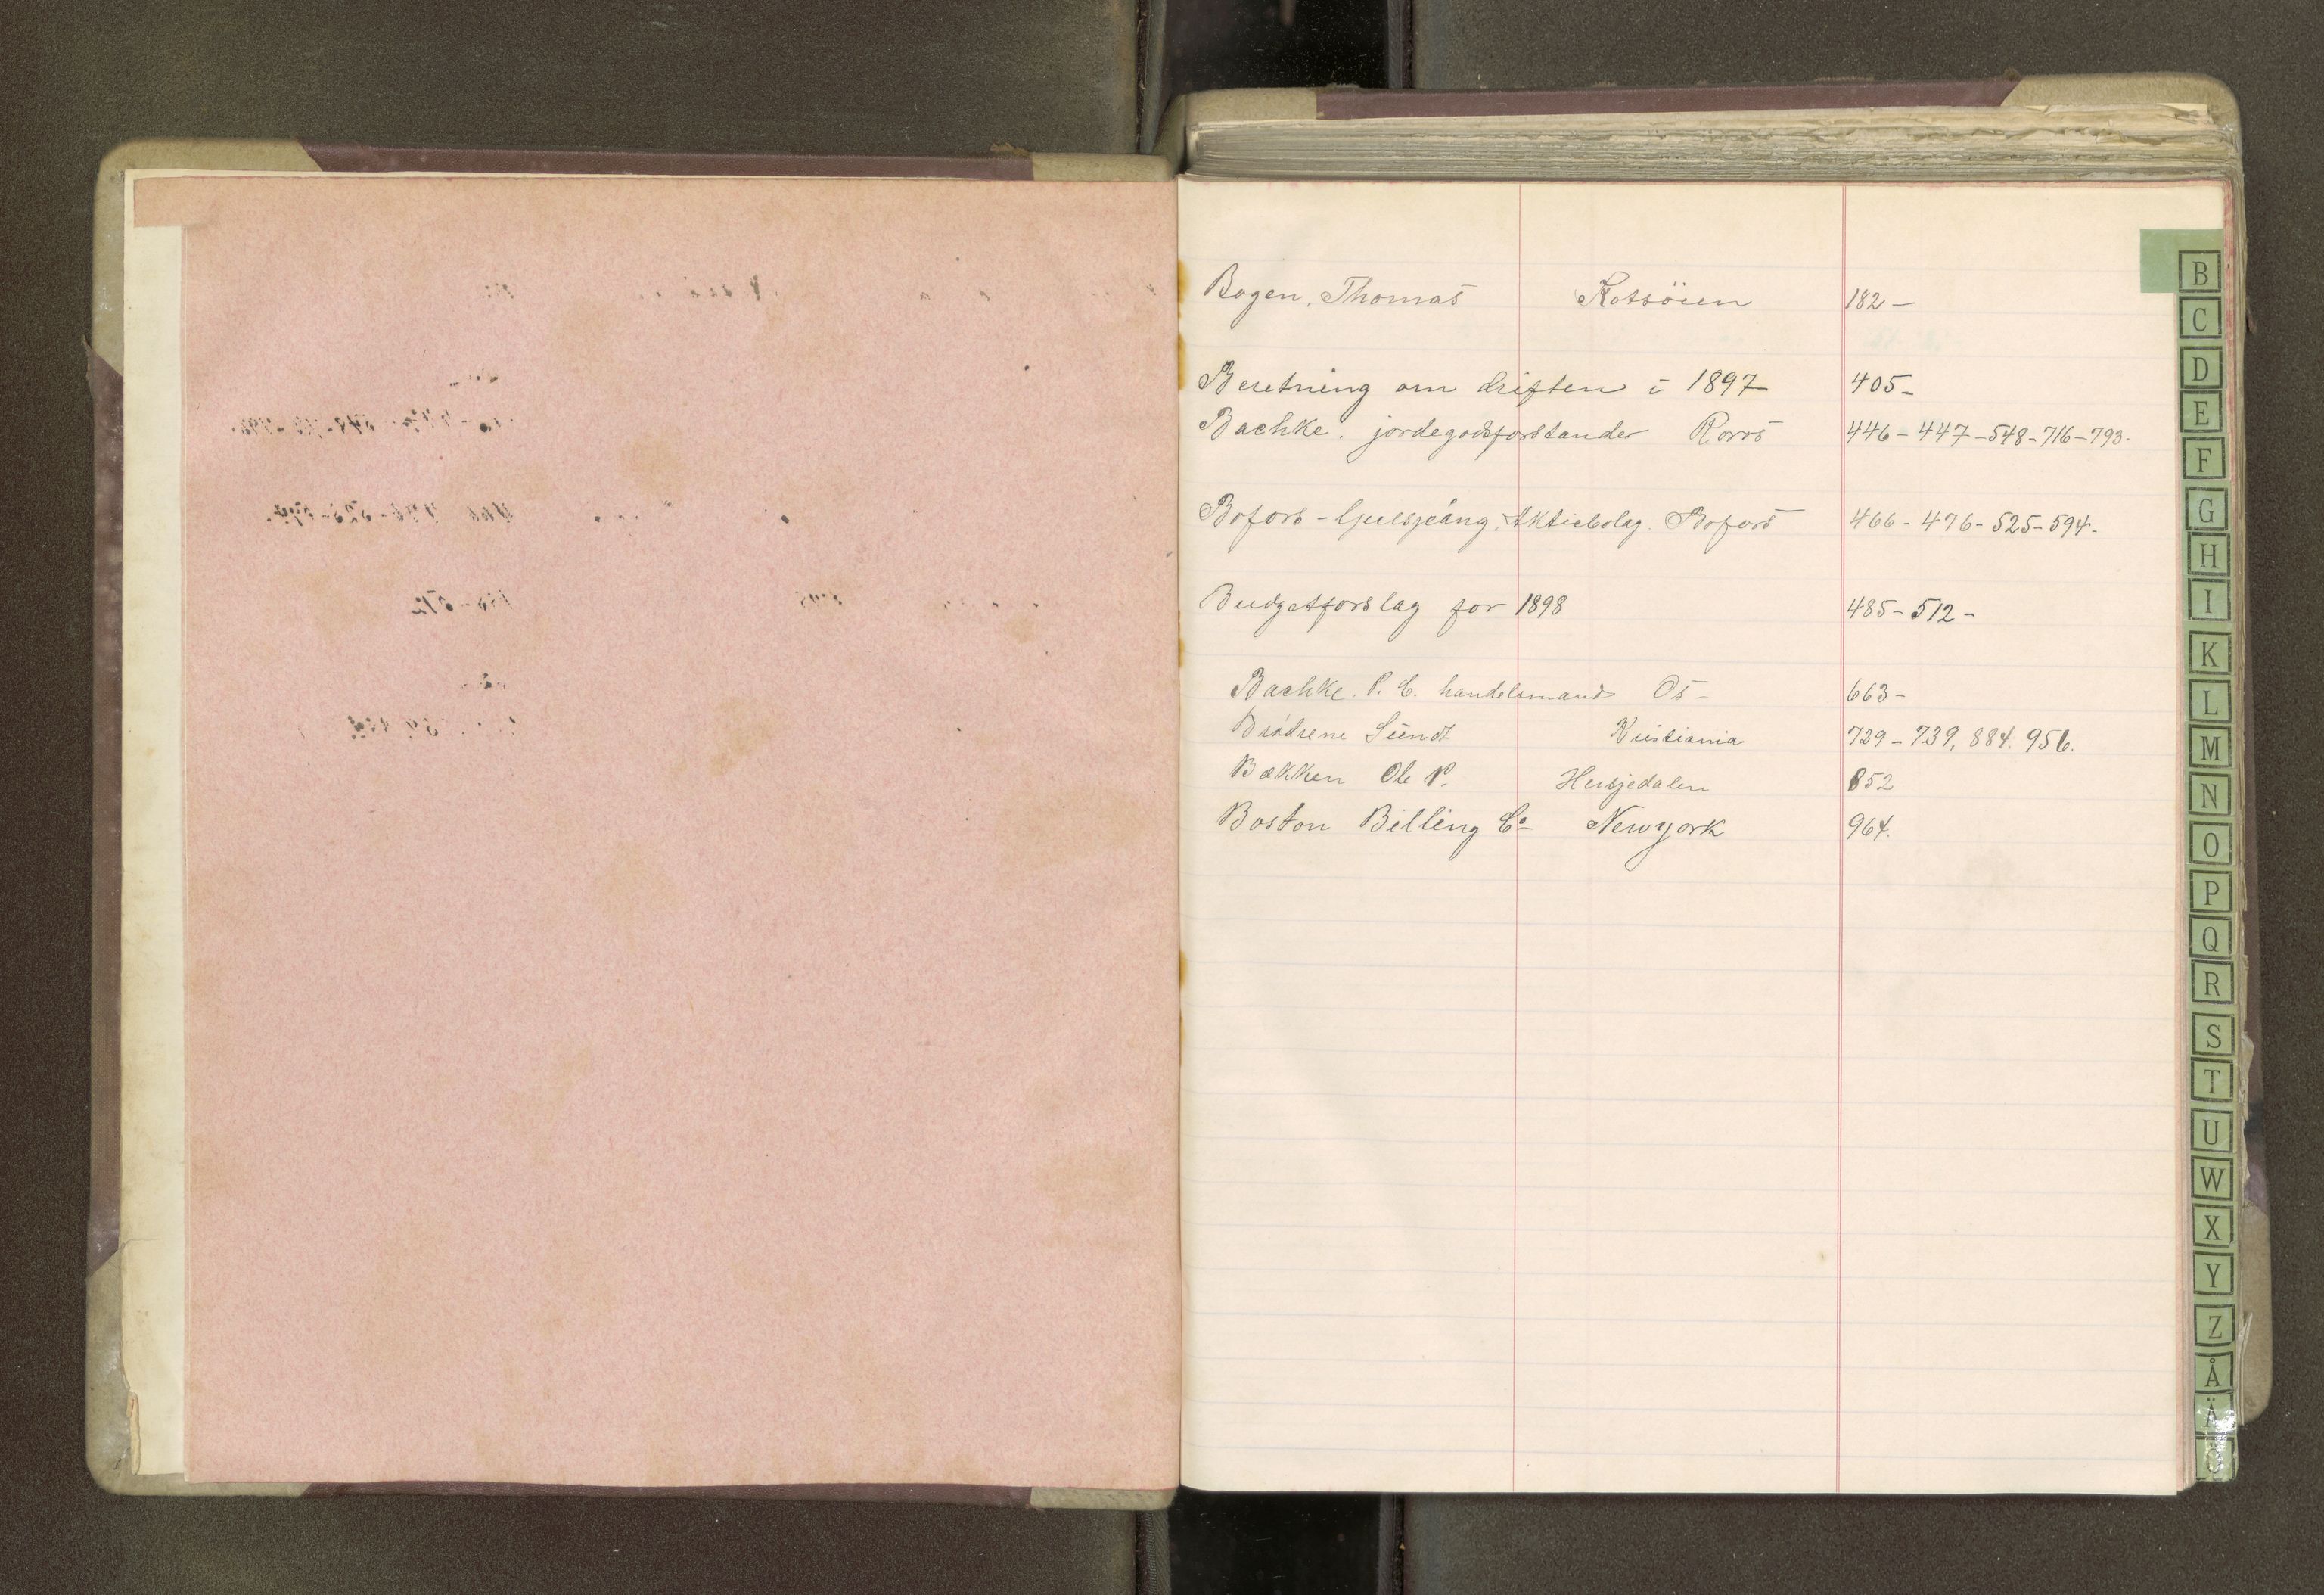 Bogen, Thomas Kotsöien 182 -
Beretning om driften i 1897 405 -
Bachke. jordegodsforstander Roros 446 - 447 - 548 - 716 - 793 -
Bofors - Aktiebolag. Bofors 466 - 476 - 525 - 594 -
Budgetforslag for 1898 485 - 512 -
Bachke. P. C. handelsmand Os - 663 -
Brødrene Sundt Kristiania 729 - 739, 884. 956.
Bækken Ole P. Hersjedalen 852
Boston Belting Co Newyork 964.
B
C
D
E
F
G
H
I
K
L
M
N
O
P
Q
R
S
T
U
W
X
Y
Z
Å
Ä
Ö